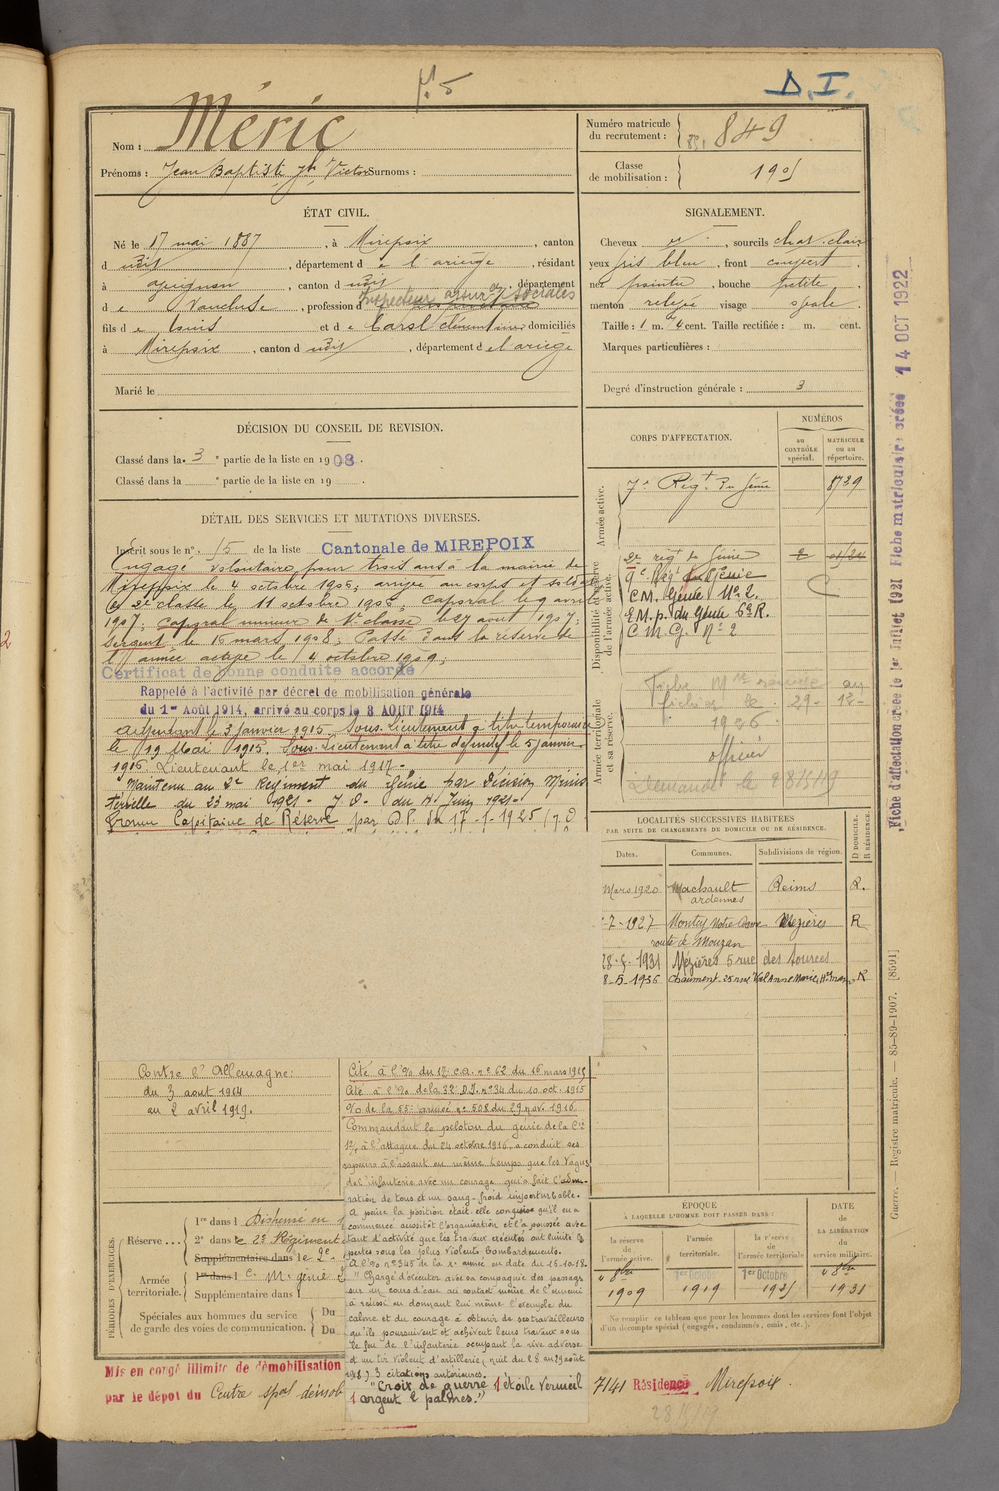 P. 5
D. I.
Nom : Méric
Prénoms : Jean Baptiste Jh Victor Surnoms :
Numéro matricule du recrutement : 849
Classe de mobilisation : 1905
ÉTAT CIVIL.
Né le 17 mai 1887, à Mirepoix, canton
d udit, département de l'ariège, résidant
à avignon, canton d udit, département
de Vaucluse, profession d Inspecteur assur ces sociales
fils de Louis et de Carsl clémentine domiciliés
à Mirepoix, canton d udit, département de l'ariège
Marié le
SIGNALEMENT.
Cheveux , sourcils chat. clair
yeux gris bleu, front couvert,
nez pointu, bouche petite,
menton relevé visage ovale.
Taille : 1 m. cent. Taille rectifiée : m. cent.
Marques particulières :
Degré d'instruction générale : 3
DÉCISION DU CONSEIL DE REVISION.
Classé dans la 3e partie de la liste en 1908.
Classé dans la e partie de la liste en 19 .
CORPS D'AFFECTATION.
NUMÉROS
AU CONTRÔLE spécial.
MATRICULE ou au répertoire.
Armée active.
7e Regt du Génie 8739
Disponibilité et réserve de l'armée active.
2e regt du Génie
9e Regt du Génie
C M. Génie No 2.
E M. p. du Génie 6e R.
C M. G. No 2
Armée territoriale et sa réserve.
Fiche Mle renvoyée au
fichier le 29-12-
1936
officier
Demandé le 28/5/19
DÉTAIL DES SERVICES ET MUTATIONS DIVERSES.
Inscrit sous le no 15 de la liste Cantonale de MIREPOIX
Engagé volontaire pour trois ans à la mairie de
Mirepoix le 4 octobre 1906; arrivé au corps et soldat
de 2e classe le 11 octobre 1906; caporal le 9 avril
1907; caporal mineur de 1e classe le 27 aout 1907;
Sergent le 16 mars 1908; Passé dans la réserve de
l'armée active le 4 octobre 1909;
Certificat de bonne conduite accordé
Rappelé à l'activité par décret de mobilisation générale
du 1er Août 1914, arrivé au corps le 3 AOUT 1914
adjudant le 3 janvier 1915 Sous-Lieutenant à titre temporaire
le 19 Mai 1915. Sous-Lieutenant à titre définitif le 5 janvier
1916. Lieutenant le 1er mai 1917.-
Maintenu au 2e Régiment du Génie par Décision Minis
térielle du 23 mai 1921 - J.O. du 4 Juin 1921-
Promu Capitaine de Réserve par D.P. du 17-1-1925 (J.O
LOCALITÉS SUCCESSIVES HABITÉES
PAR SUITE DE CHANGEMENTS DE DOMICILE OU DE RÉSIDENCE.
Dates. Communes. Subdivisions de région. D DOMICILE. R RÉSIDENCE.
Mars 1920 Machault ardennes Reims R.
-7-1927 Montcy Notre Dame Mézières R
route de Mouzon
28-8-1931 Mézières 5 rue des Sources
8-5-1936 Chaumont 25 rue Val Anne Marie, Hte Marne R
Contre l'Allemagne:
du 3 aout 1914
au 2 avril 1919.
Cité à l'% du 12e c.a. no 62 du 16 mars 1915
Cité à l'% de la 33e D.I. no 34 du 10 oct. 1915
% de la 55e armée no 508 du 29 nov. 1916
Commandant le peloton du génie de la Cie
12/, à l'attaque du 24 octobre 1916, a conduit ses
sapeurs à l'assaut en même temps que les Vagues
de l'infanterie avec un courage qui a fait l'admi-
ration de tous et un sang-froid imperturbable.
A peine la position était-elle conquise qu'il en a
commencé aussitôt l'organisation et l'a poussée avec
tant d'activité que les travaux exécutés ont limité les
pertes sous les plus violents bombardements.
A l'% no 345 de la Xe armée en date du 16.10.18.
"Chargé d'exécuter avec sa compagnie des passages
sur un cours d'eau au contact même de l'ennemi
a réussi en donnant lui même l'exemple du
calme et du courage à obtenir de ses travailleurs
qu'ils poursuivent et achèvent leurs travaux sous
le feu de l'infanterie occupant la rive adverse
et un tir violent d'artillerie (nuit du 28 au 29 août
1918.) 3 citations antérieures.
"Croix de guerre 1 étoile Vermeil
1 argent 2 palmes."
PÉRIODES D'EXERCICES.
Réserve ... 1re dans l Dispensé en 1
2e dans le 2e Régiment
Supplémentaire dans le 2e
Armée territoriale. 1re dans l C. M. génie 2
Supplémentaire dans l
Spéciales aux hommes du service de garde des voies de communication. Du Du
ÉPOQUE
À LAQUELLE L'HOMME DOIT PASSER DANS :
la réserve de l'armée active. l'armée territoriale. la réserve de l'armée territoriale
DATE de LA LIBÉRATION du service militaire.
4 8bre 1909
1er Octobre 1919
1er Octobre 1925
4 8bre 1931
Ne remplir ce tableau que pour les hommes dont les services font l'objet d'un décompte spécial (engagés, condamnés, omis, etc.).
Mis en congé illimité de démobilisation
par le dépôt du Centre spal démob
7141 Résidence Mirepoix.
28/5/19
Fiche d'affectation créée le 1er Juillet 1921 Fiche matriculaire créée 14 OCT 1922
Guerre. — Registre matricule. — 85-89-1907. [8591]